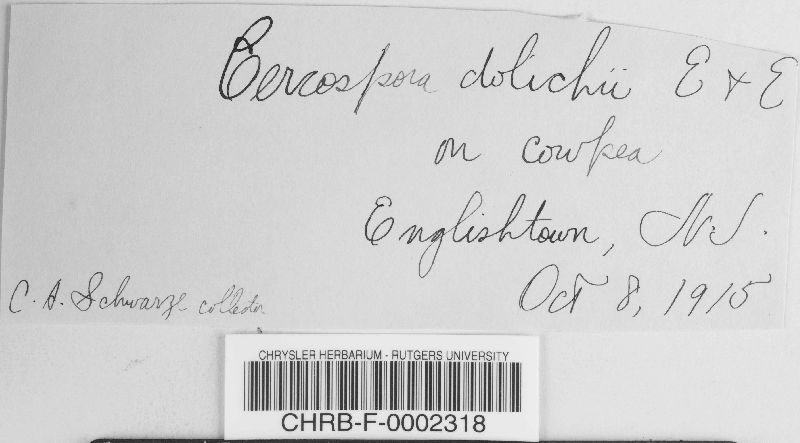 Cercospora dolichii E & E
on cowpea
Englishtown, N.J.
Oct 8, 1915
C. A. Schwarze collector
CHRYSLER HERBARIUM - RUTGERS UNIVERSITY
CHRB-F-0002318